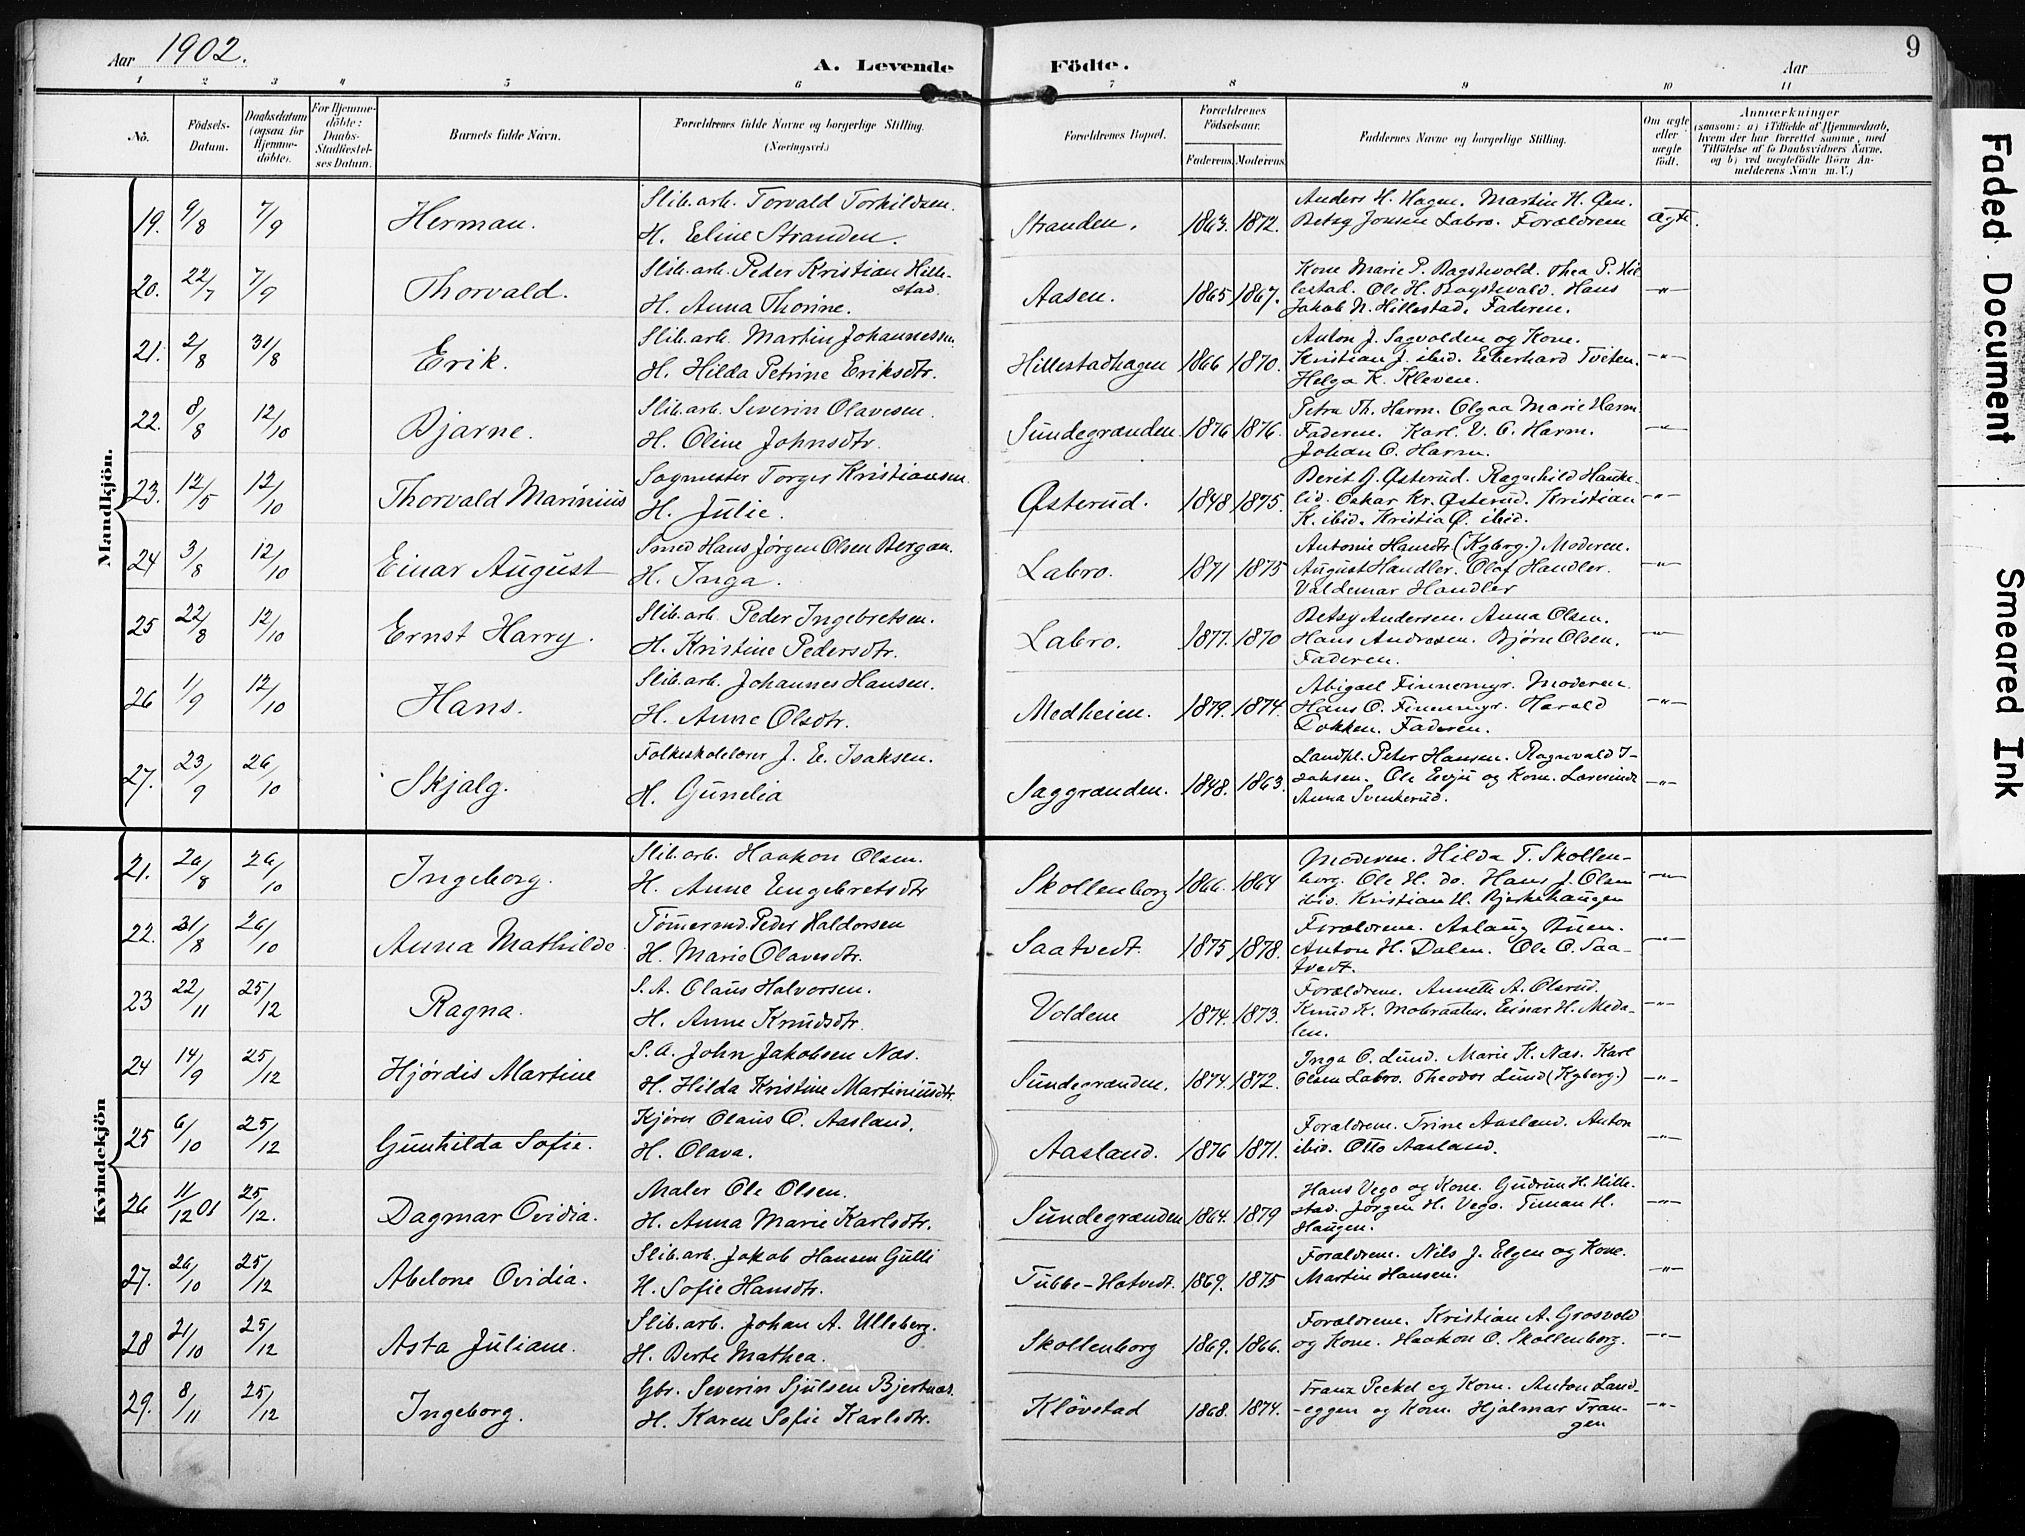 Aar 1902.
A. Levende Födte.
Aar
9
1 2 3 4 5 6 7 8 9 10 11
No. Födsels-Datum. Daabsdatum (ogsaa for Hjemme-döbte). For Hjemme-döbte: Daabs-Stadfæstel-ses Datum. Barnets fulde Navn. Forældrenes fulde Navne og borgerlige Stilling. (Næringsvei.) Forældrenes Bopæl. Forældrenes Födselsaar. Faderens. Moderens. Faddernes Navne og borgerlige Stilling. Om ægte eller uægte født. Anmærkninger (saasom: a) i Tilfælde af Hjemmedaab, hvem der har forrettet samme, med Tilföielse af to Daabsvidners Navne, og b) ved uægtefödte Börn An-melderens Navn m. V.)
Mandkjön.
19. 9/8 7/9 Herman. Slib.arb. Torvald Torkildsen. H. Eline Stranden. Stranden. 1863. 1872. Anders H. Hagen. Martin H. Betsy Jonsen Labro. Forældrene Ægte.
20. 22/7 7/9 Thorvald. Slib.arb. Peder Kristian Hille-stad. H. Anna Thorine. Aasen. 1865 1867. Kone Marie P. Bagstevold. Thea P. Hil-lestad. Ole H. Bagstevold. Hans Jakob N. Hillestad. Faderen. -"-
21. 2/8 31/8 Erik. Slib.arb. Martin Johannessen. H. Hilda Petrine Eriksdtr. Hillestadhagen 1866 1870. Anton J. Sagvolden og Kone. Kristian J. ibid. Eberhard Tveten. Helga K. Kleven. -"-
22. 8/8 12/10 Bjarne. Slib.arb. Severin Olavesen. H. Oline Johnsdtr. Sundegrænden. 1876 1876. Petra Th. Harm. Olgaa Marie Harm. Faderen. Karl. V. C. Harm. Johan C. Harm. -"-
23. 12/5 12/10 Thorvald Marinius Sagmester Torger Kristiansen. H. Julie. Østerud. 1848 1875. Beret G. Østerud. Ragnhild Hauke-lid. Oskar Kr. Østerud. Kristian K. ibid. Kristia Ø. ibid. -"-
24 3/8 12/10 Einar August Smed Hans Jørgen Olsen Bergan. H. Inga. Labro. 1871 1875 Antonie Hansdtr (Kgberg.) Moderen. August Handler. Olaf Handler. Valdemar Handler -"-
25 22/8 12/10 Ernst Harry. Slib.arb. Peder Ingebretsen. H. Kristine Pedersdtr. Labro. 1877. 1870 Betsy Andersen. Anna Olsen. Hans Andresen. Bjørn Olsen. Faderen. -"-
26 1/9 12/10 Hans. Slib.arb. Johannes Hansen. H. Anne Olsdtr. Medheien. 1879. 1874. Abigael Finnemyr. Moderen. Hans O. Finnemyr. Harald Dokken. Faderen. -"-
27. 23/9 26/10 Skjalg. Folkeskolelærer J. E. Isaksen. H. Gunelia Saggrænden. 1848. 1863. Landhl. Peter Hansen. Ragnvald I-saksen. Ole Evju og Kone. Lærerinde Anna Svenkerud. -"-
Kvindekjön
21. 26/8 26/10 Ingeborg. Slib.arb. Haakon Olsen. H. Anne Engebretsdtr Skollenborg 1866. 1864 Moderen. Hilda T. Skollen-borg. Ole H. do. Hans J. Olsen ibid. Kristian H. Bjerkehaugen -"-
22. 31/8 26/10 Anna Mathilde. Tømermd. Peder Haldorsen H. Marie Olavesdtr. Saatvedt. 1875 1878. Forældrene. Aslaug Buen. Anton H. Dalen. Ole O. Saa-tvedt. -"-
23 22/11 25/12 Ragna. S.A. Olaus Halvorsen. H. Anne Knudsdtr. Voldene 1874. 1873. Forældrene. Annette A. Olsrud. Knud K. Mobraaten. Einar H. Meda-len. -"-
24 14/9 25/12 Hjørdis Martine S.A. John Jakobsen Næs. H. Hilda Kristine Martiniusdtr. Sundegrænden. 1874. 1872. Inga O. Lund. Marie K. Næs. Karl Olsen Labro. Theodor Lund (Kgberg.) -"-
25 6/10 25/12 Gunhilda Sofie. Kjører Olaus O. Aasland. H. Olava. Aasland. 1876 1871. Forældrene. Trine Aasland. Anton ibid. Otto Aasland. -"-
26 11/12 01 25/12. Dagmar Ovidia. Maler Ole Olsen. H. Anna Marie Karlsdtr. Sundegrænden 1864. 1879 Hans Vego og Kone. Gudrun H. Hille-stad. Jørgen H. Vego. Timan H. Haugen. -"-
27. 26/10 25/12 Abelone Ovidia. Slib.arb. Jakob Hansen Gulli H. Sofie Hansdtr. Tubbe-Hotvedt. 1869. 1875 Forældrene. Nils J. Elgen og Kone. Martin Hansen. -"-
28 21/10 25/12 Asta Juliane. Slib.arb. Johan A. Ulleberg. H. Berte Mathea. Skollenborg 1869. 1866. Forældrene. Kristian A. Grosvold og Kone. Haakon O. Skollenborg. -"-
29. 8/11 25/12 Ingeborg. Gbr. Severin Sjulsen Bjertnæs. H. Karen Sofie Karlsdtr. Kløvstad 1868. 1874. Franz Peckel og Kone. Anton Land-eggen og Kone. Hjalmar Tran-gen -"-
Faded Document
Smeared Ink